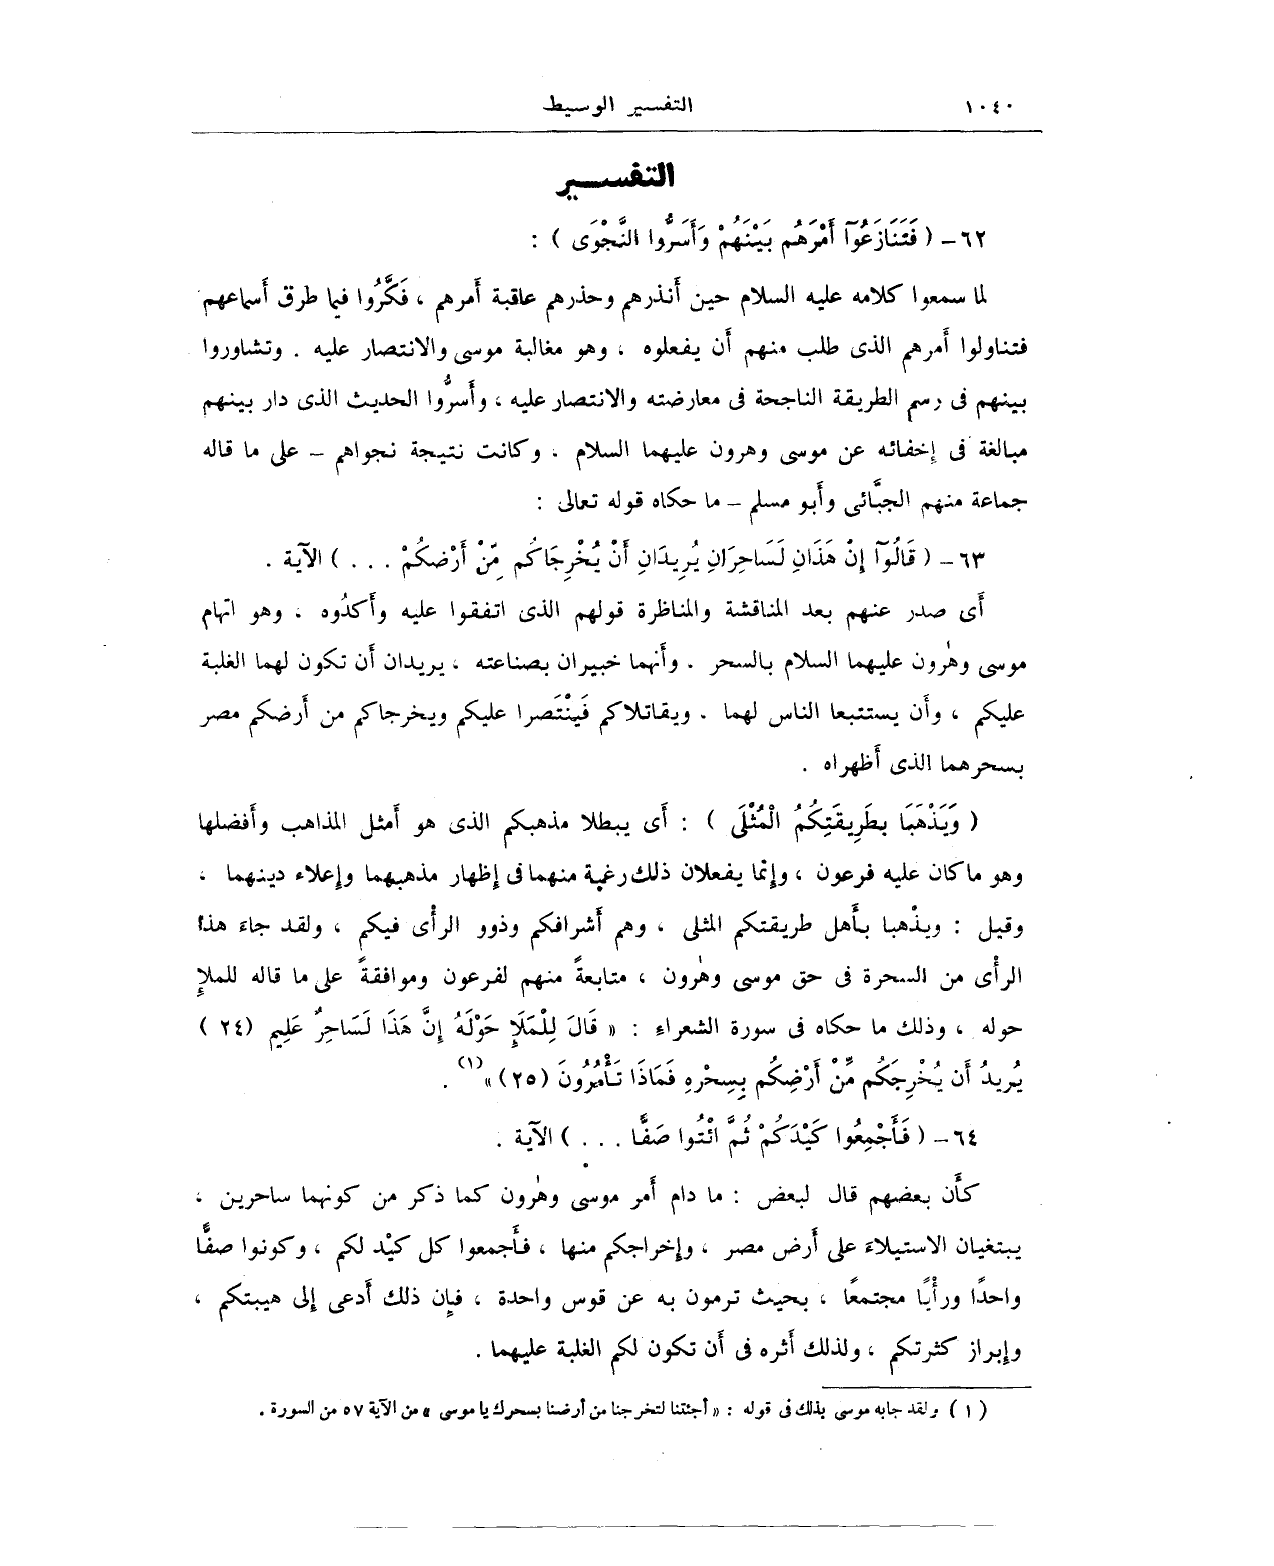 ١٠٤٠ التفسير الوسيط
التفسير
٦٢ – ( فَتَنَازَعُوٓا أَمْرَهُم بَيْنَهُمْ وَأَسَرُّوا النَّجْوَى ) :
لما سمعوا كلامه عليه السلام حين أنذرهم وحذرهم عاقبة أمرهم ، فَكَّرُوا فيما طرق أسماعهم
فتناولوا أمرهم الذى طلب منهم أن يفعلوه ، وهو مغالبة موسى والانتصار عليه . وتشاوروا
بينهم فى رسم الطريقة الناجحة فى معارضته والانتصار عليه ، وأسرُّوا الحديث الذى دار بينهم
مبالغة فى إخفائه عن موسى وهرون عليهما السلام ، وكانت نتيجة نجواهم – على ما قاله
جماعة منهم الجبَّائى وأبو مسلم – ما حكاه قوله تعالى :
٦٣ – ( قَالُوٓا إِنْ هَذَانِ لَسَاحِرَانِ يُرِيدَانِ أَنْ يُخْرِجَاكُم مِّنْ أَرْضِكُمْ . . . ) الآية .
أى صدر عنهم بعد المناقشة والمناظرة قولهم الذى اتفقوا عليه وأكدُوه ، وهو اتهام
موسى وهٰرون عليهما السلام بالسحر . وأنهما خبيران بصناعته ، يريدان أن تكون لهما الغلبة
عليكم ، وأن يستتبعا الناس لهما . ويقاتلاكم فَينْتَصرا عليكم ويخرجاكم من أرضكم مصر
بسحرهما الذى أظهراه .
( وَيَذْهَبَا بِطَرِيقَتِكُمُ الْمُثْلَى ) : أى يبطلا مذهبكم الذى هو أمثل المذاهب وأفضلها
وهو ما كان عليه فرعون ، وإنما يفعلان ذلك رغبة منهما فى إظهار مذهبهما وإعلاء دينهما ،
وقيل : ويذْهبا بأهل طريقتكم المثلى ، وهم أشرافكم وذوو الرأْى فيكم ، ولقد جاءَ هذا
الرأْى من السحرة فى حق موسى وهٰرون ، متابعةً منهم لفرعون وموافقةً على ما قاله للملإِ
حوله ، وذلك ما حكاه فى سورة الشعراء : « قَالَ لِلْمَلَإِ حَوْلَهُ إِنَّ هَذَا لَسَاحِرٌ عَلِيم (٢٤)
يُرِيدُ أَن يُخْرِجَكُم مِّنْ أَرْضِكُم بِسِحْرِهِ فَمَاذَا تَأْمُرُونَ (٢٥) »(١) .
٦٤ – ( فَأَجْمِعُوا كَيْدَكُمْ ثُمَّ ائْتُوا صَفًّا . . . ) الآية .
كأَن بعضهم قال لبعض : ما دام أمر موسى وهٰرون كما ذكر من كونهما ساحرين ،
يبتغيان الاستيلاءَ على أرض مصر ، وإخراجكم منها ، فأجمعوا كل كيْد لكم ، وكونوا صفًّا
واحدًا ورأْيًا مجتمعًا ، بحيث ترمون به عن قوس واحدة ، فإن ذلك أدعى إلى هيبتكم ،
وإبراز كثرتكم ، ولذلك أثره فى أن تكون لكم الغلبة عليهما .
( ١ ) ولقد جابه موسى بذلك فى قوله : « أجئتنا لتخرجنا من أرضنا بسحرك يا موسى » من الآية ٥٧ من السورة .